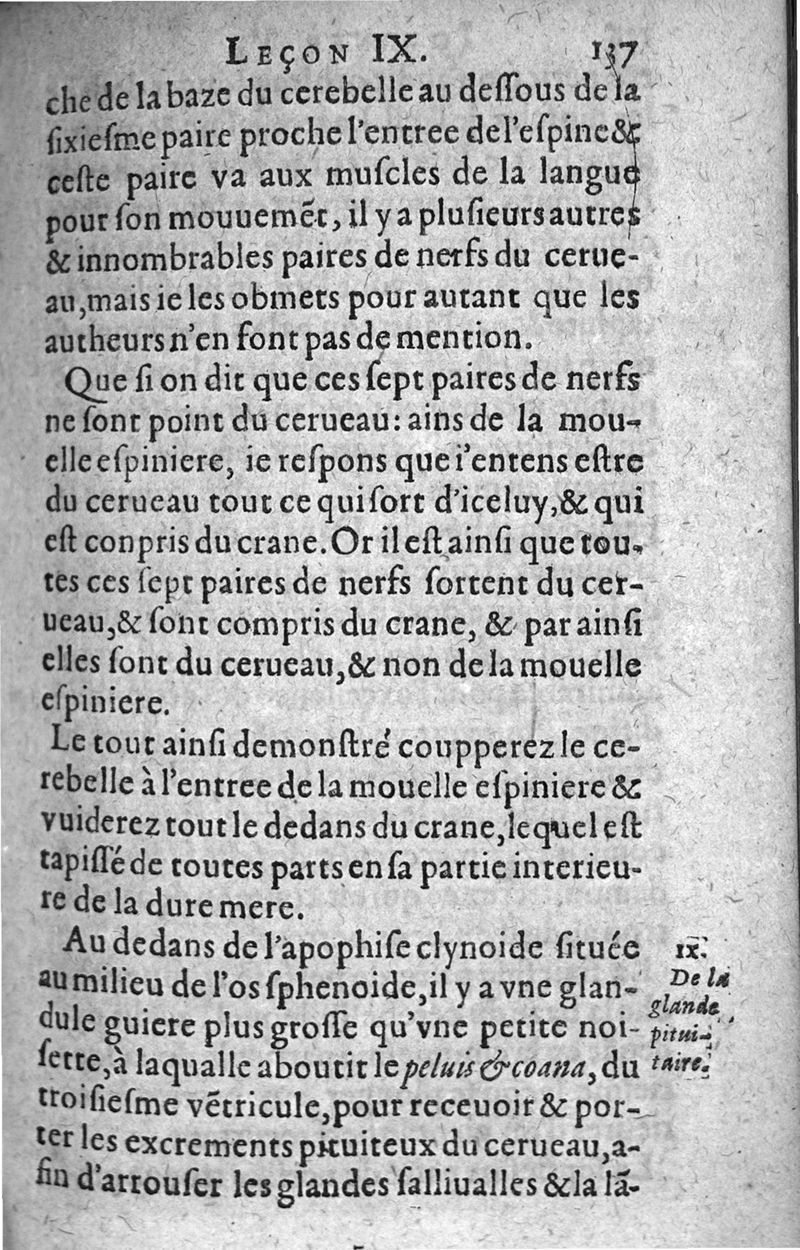 LEÇON IX. 137
che de la baze du cerebelle au deſſous de la
ſixieſme paire proche l'entree de l'eſpine &
ceſte paire va aux muſcles de la langue
pour ſon mouuemẽt, il y a pluſieurs autres
& innombrables paires de nerfs du cerue-
au, mais ie les obmets pour autant que les
autheurs n'en font pas de mention.
Que ſi on dit que ces ſept paires de nerfs
ne ſont point du cerueau: ains de la mou-
elle eſpiniere, ie reſpons que i'entens eſtre
du cerueau tout ce qui ſort d'iceluy, & qui
eſt conpris du crane. Or il eſt ainſi que tou-
tes ces ſept paires de nerfs ſortent du cer-
ueau, & ſont compris du crane, & par ainſi
elles ſont du cerueau, & non de la mouelle
eſpiniere.
Le tout ainſi demonſtré coupperez le ce-
rebelle à l'entree de la mouelle eſpiniere &
vuiderez tout le dedans du crane, lequel eſt
tapiſſé de toutes parts en ſa partie interieu-
re de la dure mere.
Au dedans de l'apophiſe clynoide ſituée
au milieu de l'os ſphenoide, il y a vne glan-
dule guiere plus groſſe qu'vne petite noi-
ſette, à laqualle aboutit le peluis & coana, du
troiſieſme vẽtricule, pour receuoir & por-
ter les excrements pituiteux du cerueau, a-
fin d'arrouſer les glandes ſalliualles & la lã-
IX.
De la
glande
pitui-
taire.